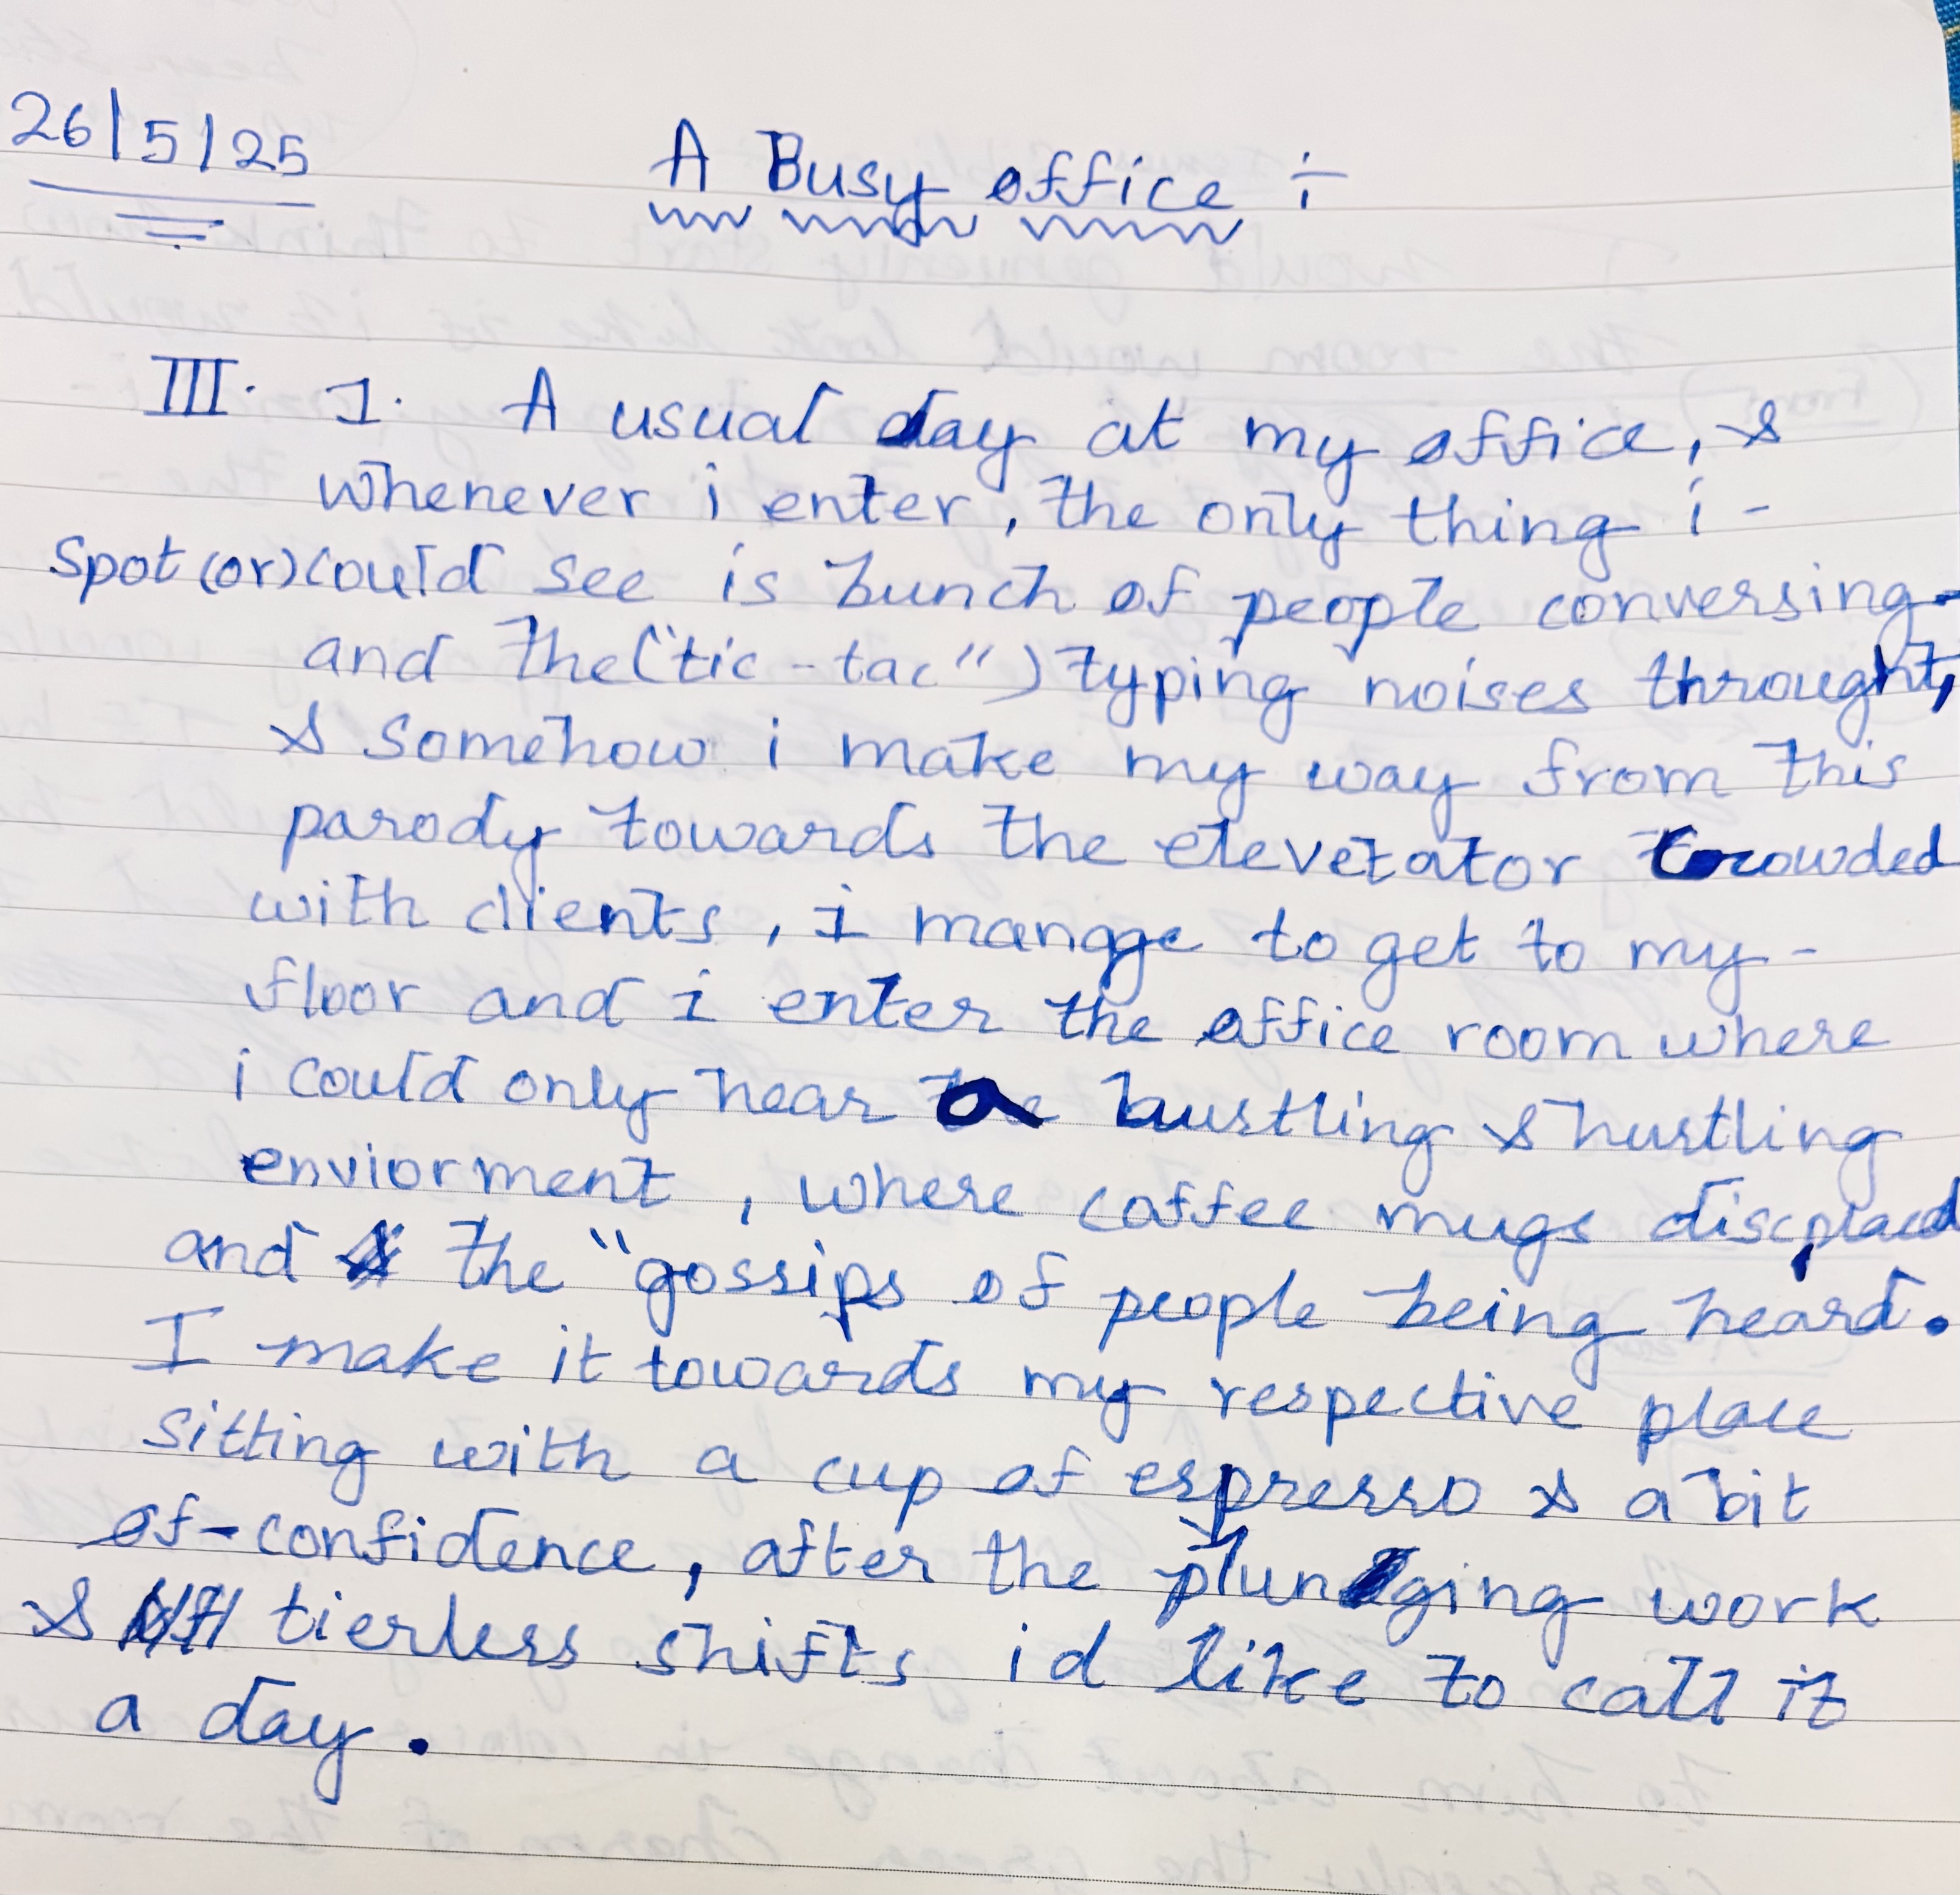 26/5/25
A Busy office :-
III. 1. A usual day at my office, &
whenever i enter, the only thing i -
spot (or) could see is bunch of people conversing-
and the ("tic - tac") typing noises throught,
& somehow i make my way from this
parody towards the elevetator crowded
with clients, i mangge to get to my -
floor and i enter the office room where
i could only hear a bustling & hustling
enviorment, where coffee mugs discplaced
and the "gossips of people being heard.
I make it towards my respective place
sitting with a cup of espresso & a bit
of-confidence, after the plunging work
& tierless shifts id like to call it
a day.